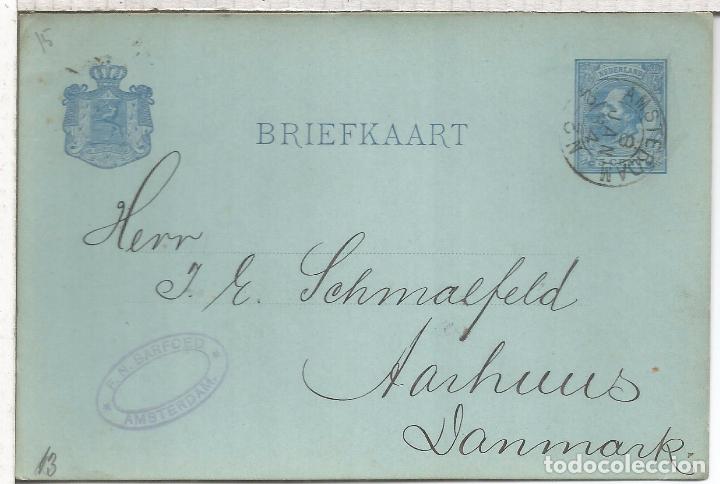 15
NEDERLAND
AMSTERDAM
JAN
BRIEFKAART
Herr
J. E. Schmalfeld
Aarhuus
Danmark.
* P. N. BARFOED *
AMSTERDAM.
13
todocoleccion.net